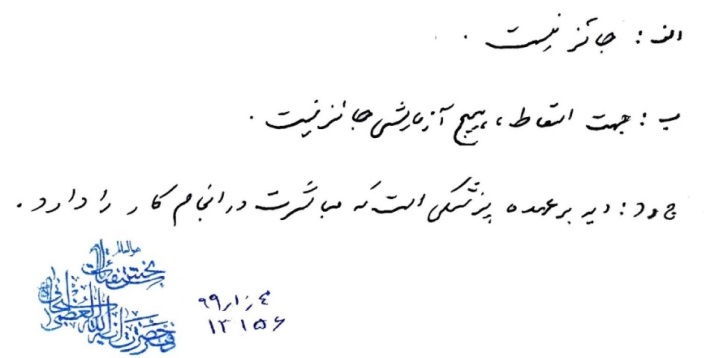 الف: جائز نیست.
ب: جهت اسقاط، هیچ آزمایشی جائز نیست.
ج و د: دیه بر عهده پزشکی است که مباشرت در انجام کار را دارد.
هو العالم
بخش استفتائات
دفتر حضرت آیة الله العظمی
۱۳۱۵۶